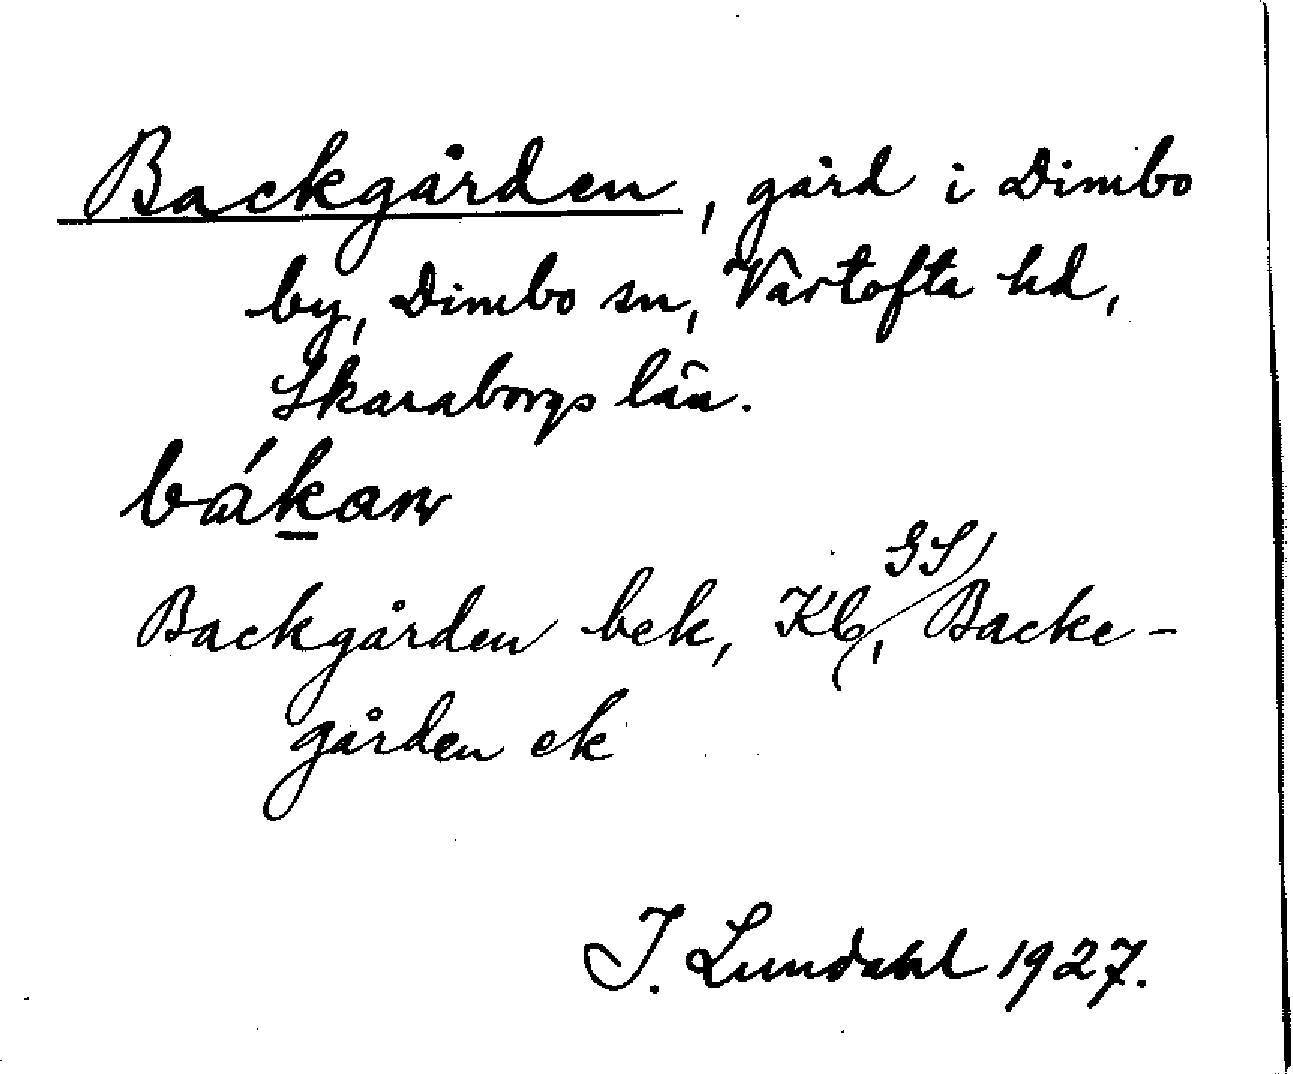 Backgården, gård i Dimbo
by, Dimbo sn, Vartofta hd,
Skaraborgs län.
bákan
GS,
Backgården bek, Kb, Backe-
gården ek
I. Lundahl 1927.